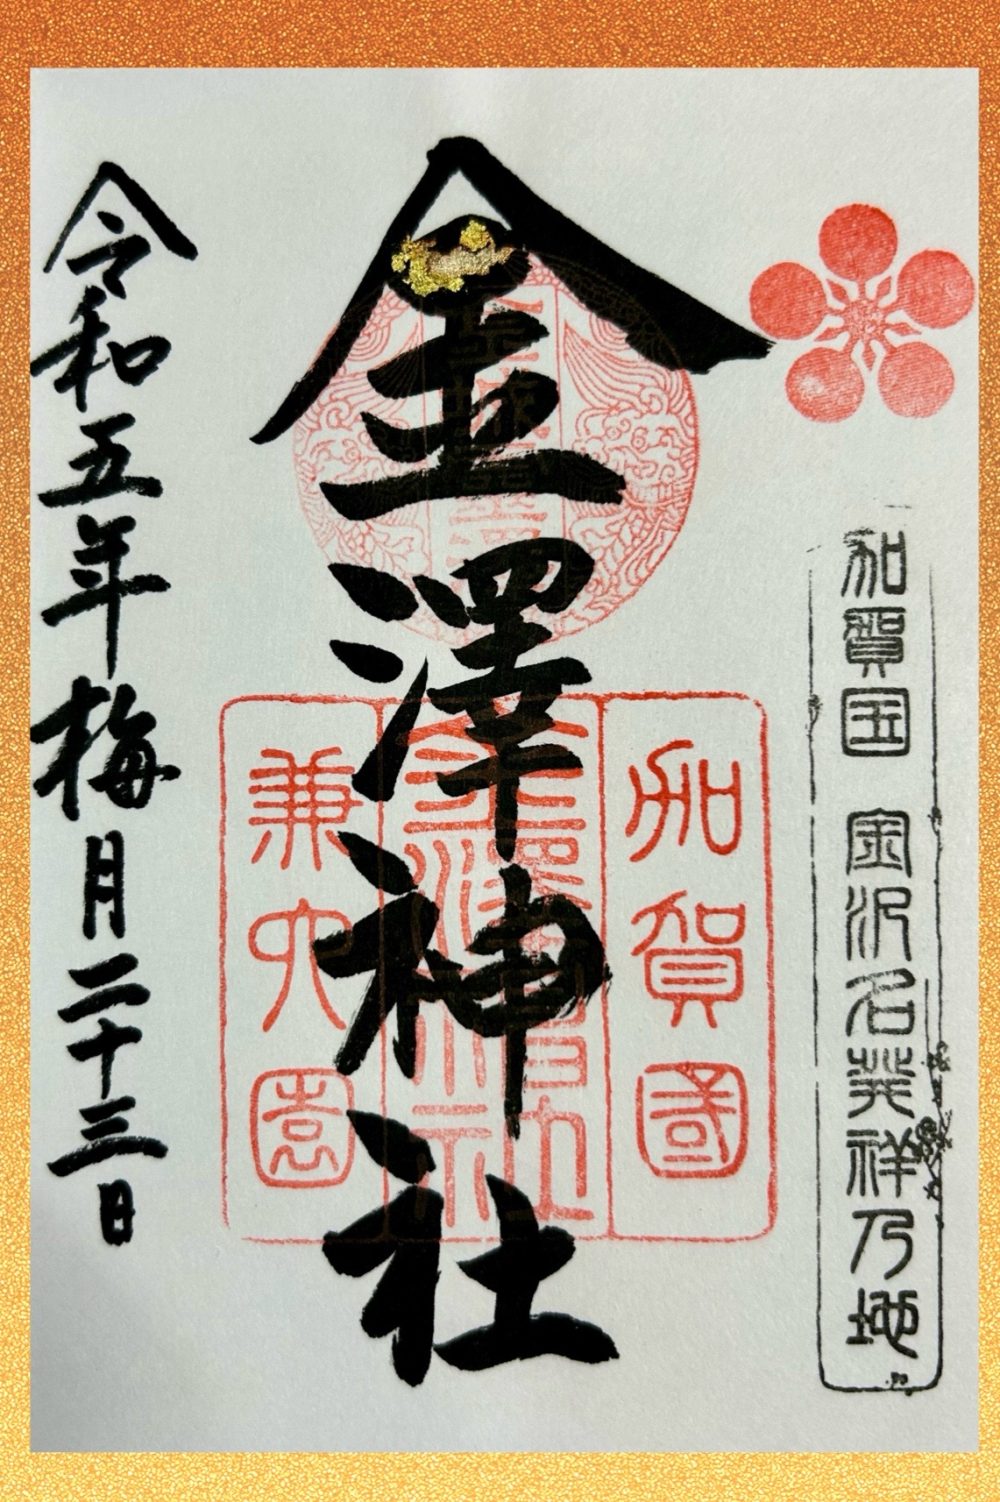 加賀国 金沢名発祥乃地
金澤神社
加賀國
金澤神社
兼六園
令和五年梅月二十三日